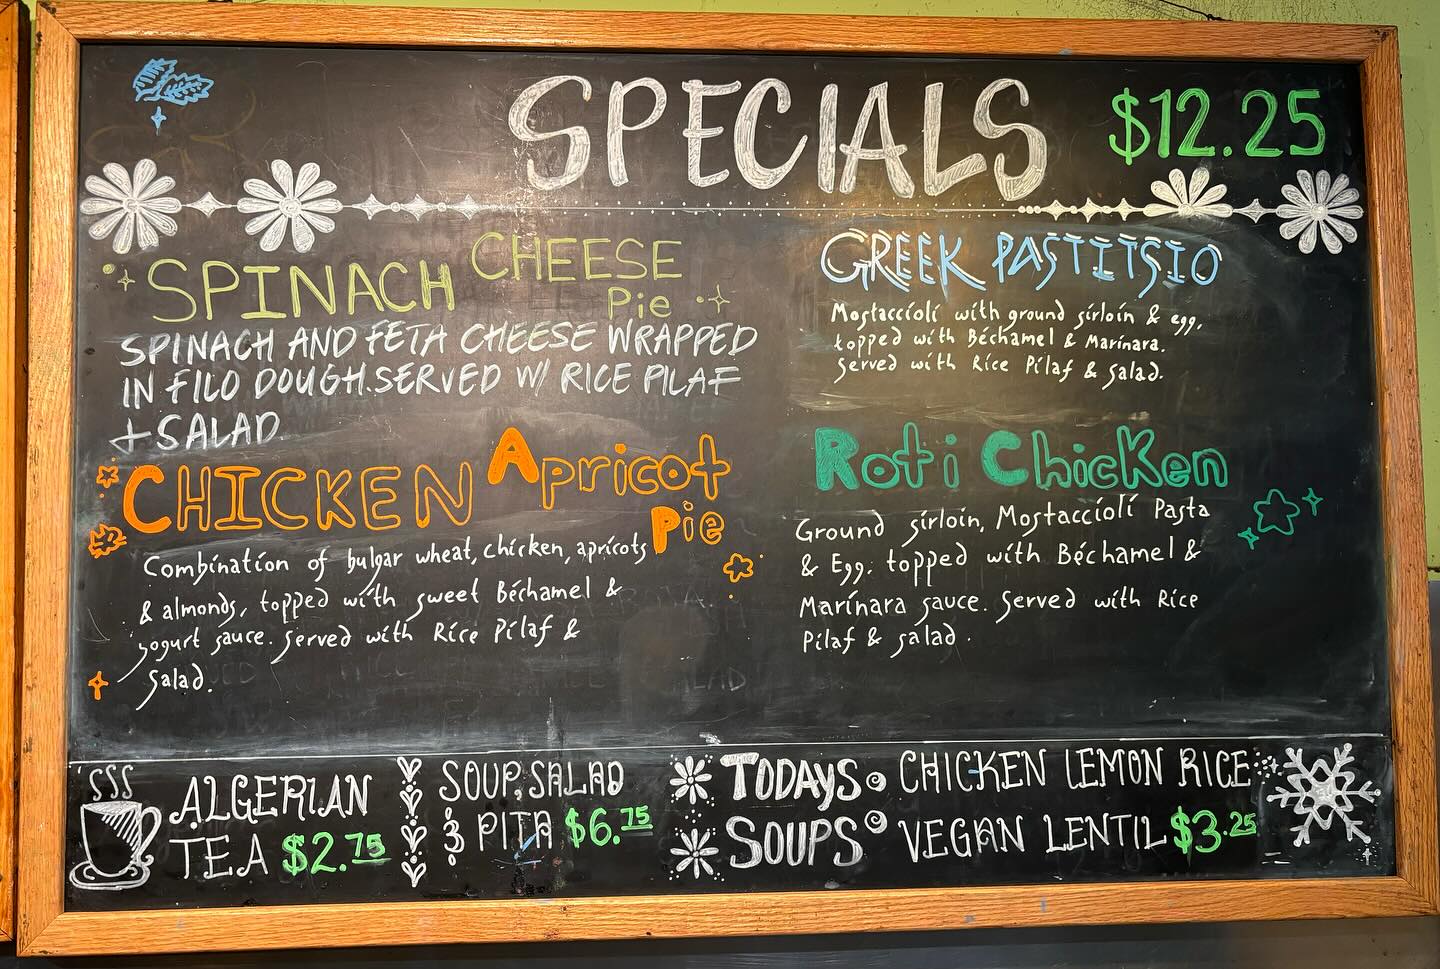 SPECIALS $12.25
SPINACH CHEESE
Pie
SPINACH AND FETA CHEESE WRAPPED
IN FILO DOUGH. SERVED W/ RICE PILAF
+ SALAD
GREEK PASTITSIO
Mostaccioli with ground sirloin & egg,
topped with Béchamel & Marinara.
Served with Rice Pilaf & Salad.
CHICKEN Apricot
Pie
Combination of bulgar wheat, chicken, apricots
& almonds, topped with sweet Béchamel &
yogurt sauce. Served with Rice Pilaf &
Salad.
Roti Chicken
Ground sirloin, Mostaccioli Pasta
& Egg. topped with Béchamel &
Marinara sauce. Served with Rice
Pilaf & salad.
ALGERIAN
TEA $2.75
SOUP, SALAD
& PITA $6.75
TODAYS
SOUPS
CHICKEN LEMON RICE
VEGAN LENTIL $3.25